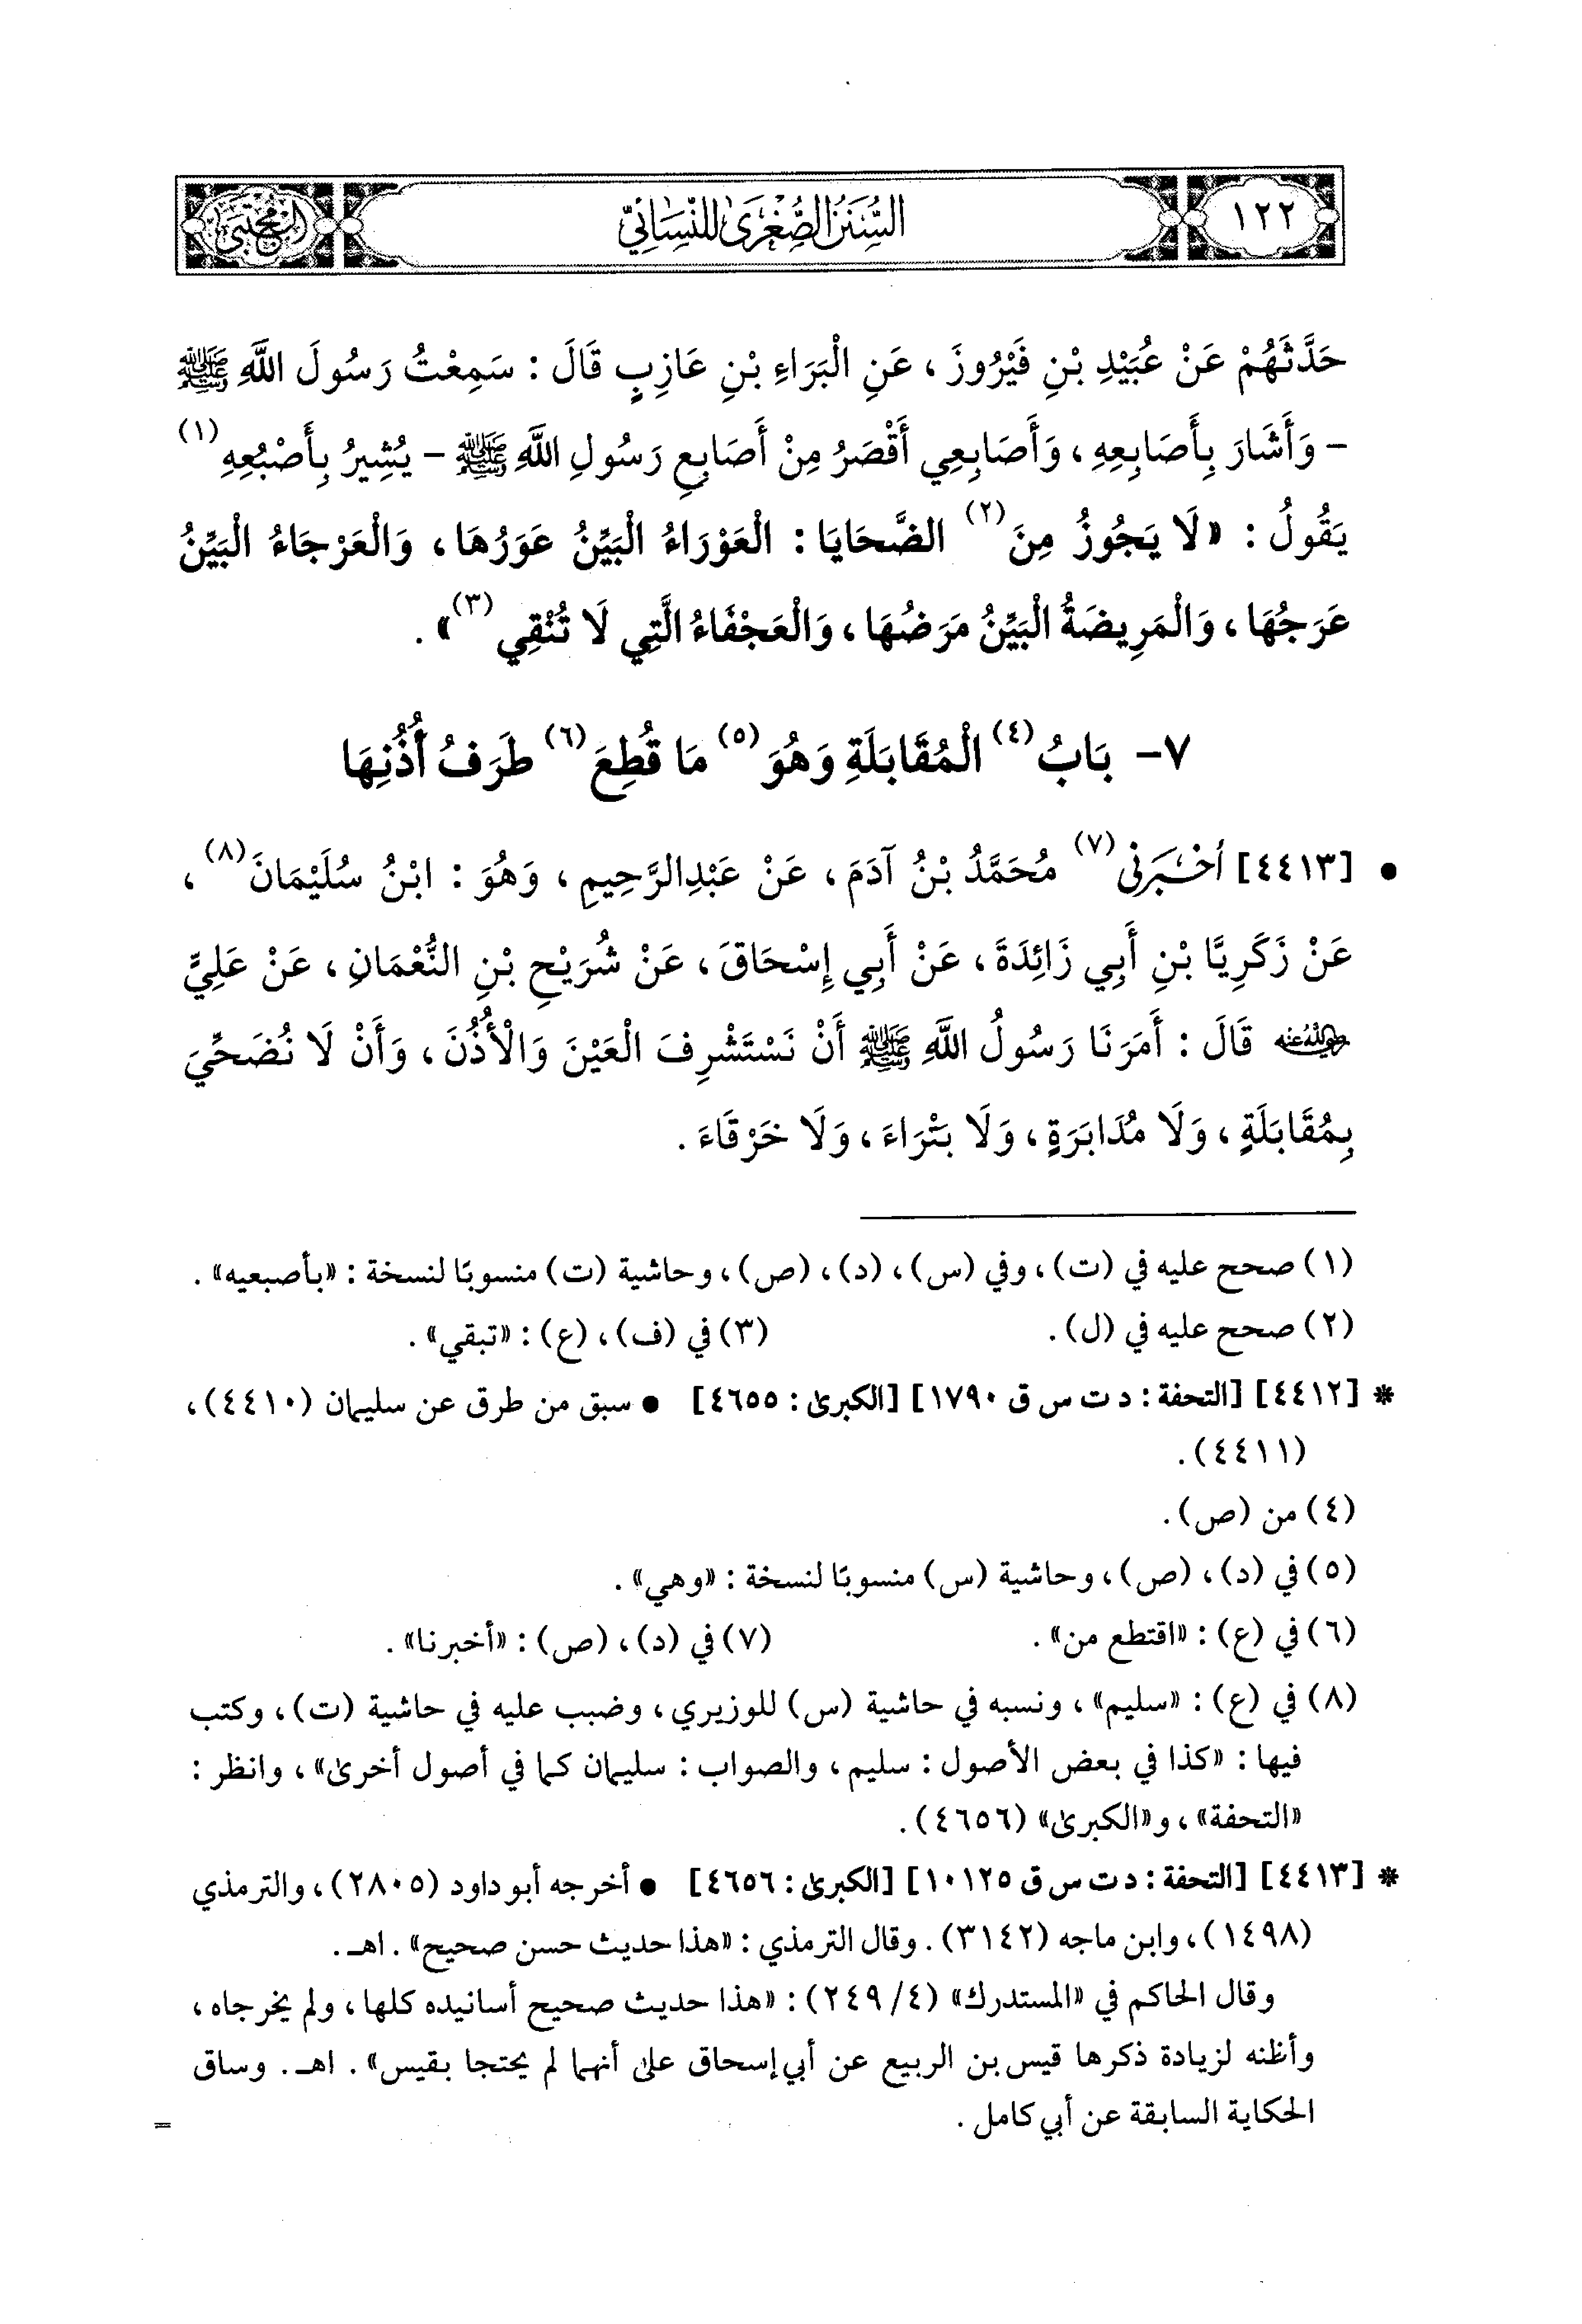 ١٢٢
السُّنَنُ الصُّغْرَىٰ لِلنَّسَائِيِّ
المجتبى
حَدَّثَهُمْ عَنْ عُبَيْدِ بْنِ فَيْرُوزَ ، عَنِ الْبَرَاءِ بْنِ عَازِبٍ قَالَ : سَمِعْتُ رَسُولَ اللَّهِ ﷺ
- وَأَشَارَ بِأَصَابِعِهِ ، وَأَصَابِعِي أَقْصَرُ مِنْ أَصَابِعِ رَسُولِ اللَّهِ ﷺ - يُشِيرُ بِأَصْبُعِهِ (١)
يَقُولُ : «لَا يَجُوزُ مِنَ (٢) الضَّحَايَا : الْعَوْرَاءُ الْبَيِّنُ عَوَرُهَا ، وَالْعَرْجَاءُ الْبَيِّنُ
عَرَجُهَا ، وَالْمَرِيضَةُ الْبَيِّنُ مَرَضُهَا ، وَالْعَجْفَاءُ الَّتِي لَا تُنْقِي (٣)» .
٧- بَابُ (٤) الْمُقَابَلَةِ وَهُوَ (٥) مَا قُطِعَ (٦) طَرَفُ أُذُنِهَا
• [٤٤١٣] أَخْبَرَنِي (٧) مُحَمَّدُ بْنُ آدَمَ ، عَنْ عَبْدِالرَّحِيمِ ، وَهُوَ : ابْنُ سُلَيْمَانَ (٨) ،
عَنْ زَكَرِيَّا بْنِ أَبِي زَائِدَةَ ، عَنْ أَبِي إِسْحَاقَ ، عَنْ شُرَيْحِ بْنِ النُّعْمَانِ ، عَنْ عَلِيٍّ
رضي الله عنه قَالَ : أَمَرَنَا رَسُولُ اللَّهِ ﷺ أَنْ نَسْتَشْرِفَ الْعَيْنَ وَالْأُذُنَ ، وَأَنْ لَا نُضَحِّيَ
بِمُقَابَلَةٍ ، وَلَا مُدَابَرَةٍ ، وَلَا بَتْرَاءَ ، وَلَا خَرْقَاءَ .
(١) صحح عليه في (ت) ، وفي (س) ، (د) ، (ص) ، وحاشية (ت) منسوبًا لنسخة : «بأصبعيه» .
(٢) صحح عليه في (ل) . (٣) في (ف) ، (ع) : «تبقي» .
* [٤٤١٢] [التحفة : د ت س ق ١٧٩٠] [الكبرىٰ : ٤٦٥٥] • سبق من طرق عن سليمان (٤٤١٠) ،
(٤٤١١) .
(٤) من (ص) .
(٥) في (د) ، (ص) ، وحاشية (س) منسوبًا لنسخة : «وهي» .
(٦) في (ع) : «اقتطع من» . (٧) في (د) ، (ص) : «أخبرنا» .
(٨) في (ع) : «سليم» ، ونسبه في حاشية (س) للوزيري ، وضبب عليه في حاشية (ت) ، وكتب
فيها : «كذا في بعض الأصول : سليم ، والصواب : سليمان كما في أصول أخرىٰ» ، وانظر :
«التحفة» ، و«الكبرىٰ» (٤٦٥٦) .
* [٤٤١٣] [التحفة : د ت س ق ١٠١٢٥] [الكبرىٰ : ٤٦٥٦] • أخرجه أبو داود (٢٨٠٥) ، والترمذي
(١٤٩٨) ، وابن ماجه (٣١٤٢) . وقال الترمذي : «هذا حديث حسن صحيح» . اهـ .
وقال الحاكم في «المستدرك» (٤/ ٢٤٩) : «هذا حديث صحيح أسانيده كلها ، ولم يخرجاه ،
وأظنه لزيادة ذكرها قيس بن الربيع عن أبي إسحاق علىٰ أنهما لم يحتجا بقيس» . اهـ . وساق
الحكاية السابقة عن أبي كامل .
=